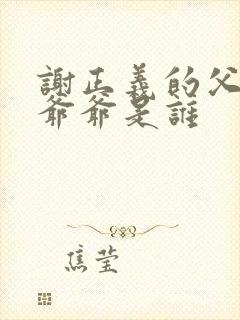 謝正義的父
爺爺是誰
焦莹